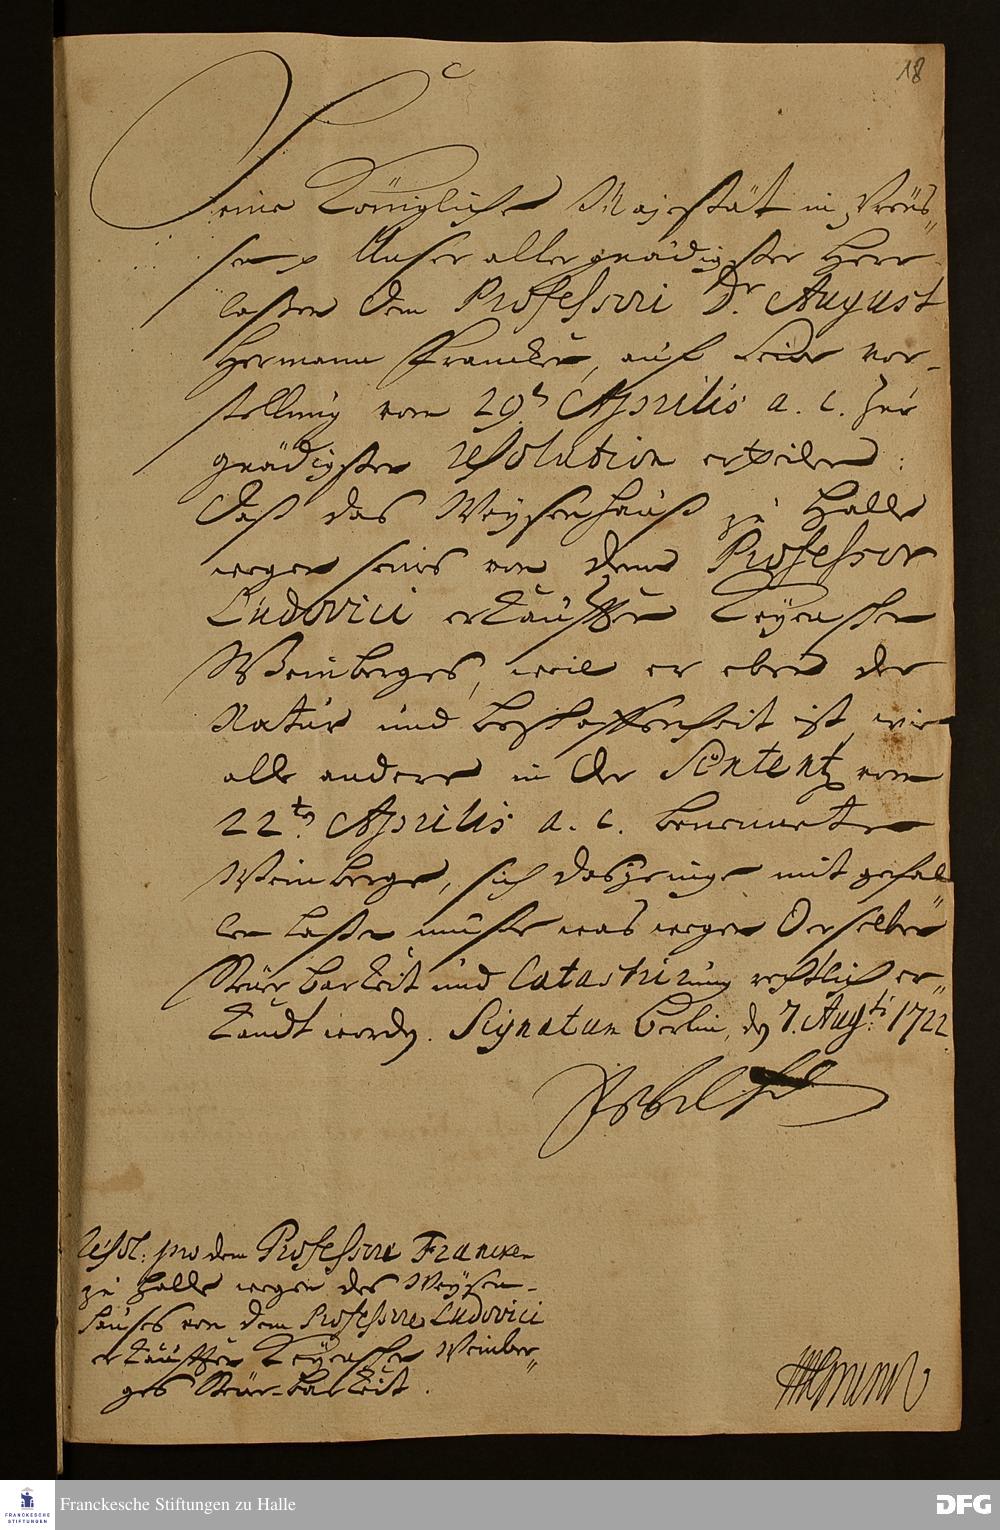 18
Seine Königliche Majestät in Preüs-
sen p Unser allergnädigster Herr
laßen dem Professori Dr. August
Hermann Francken, auf seine vor-
stellung vom 29t Aprilis a. c. zur
gnädigsten resolution ertheilen:
Daß das Waysenhauß zu Halle
wegen seines von dem Professor
Ludovici erkaufften
Weinberges, weil er eben der
Natur und Beschaffenheit ist, wie
alle andere in der Sententz vom
22ten Aprilis a. c. benennete
Weinberge, sich dasjenige mit gefal-
len laßen müste was wegen Derselben
Steuerbarkeit und Catastrirung rechtlich er-
kandt worden. Signatum Berlin, den 7. Augti 1722.
Resol: pro dem Professore Francken
zu Halle wegen des Waysen-
hauses von dem Professore Ludovici
erkaufften Weinber-
ges Steuer-barkeit.
Franckesche Stiftungen zu Halle
FRANCKESCHE
STIFTUNGEN
DFG